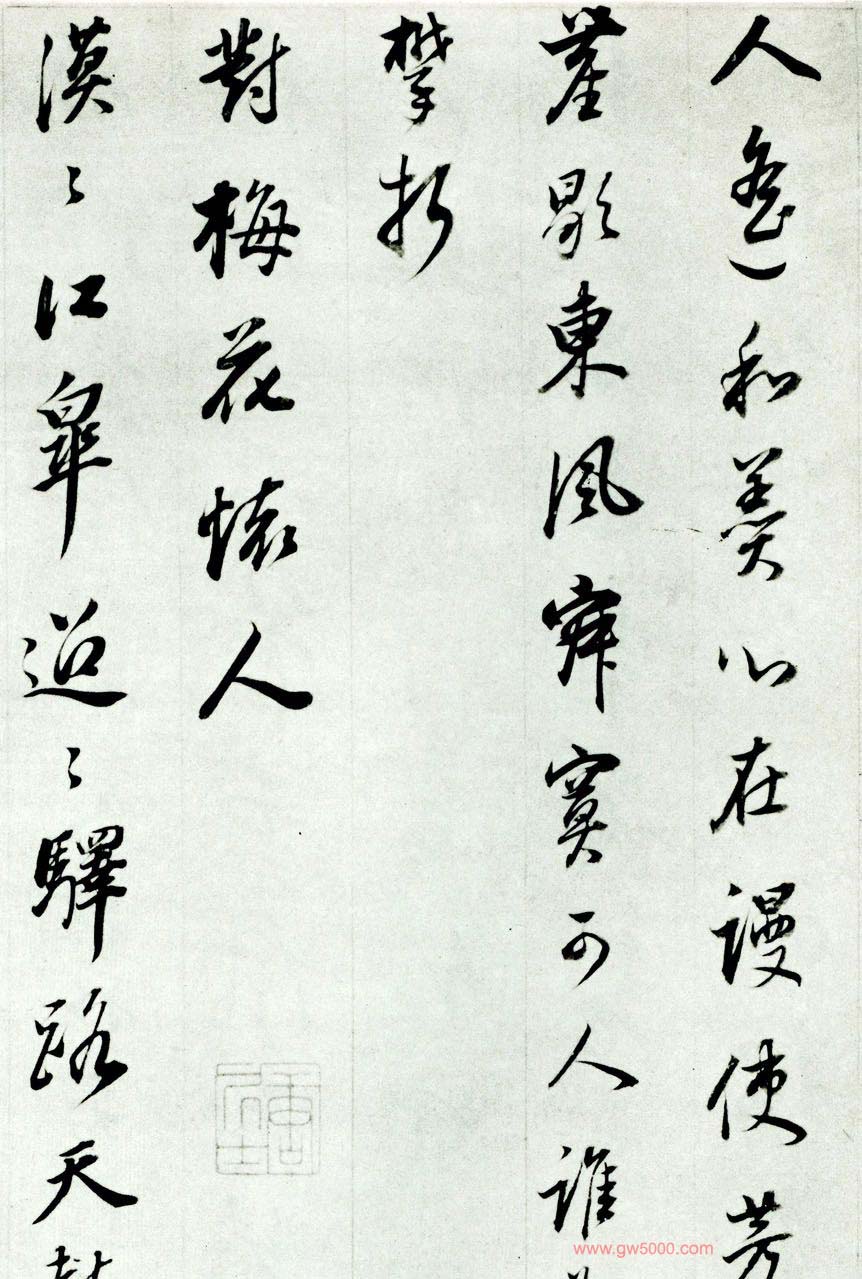 人遙和羹心在謾使芳
叢歇東風寂寞可人誰
攀折
對梅花懷人
漠〻江皋迢〻驛路天
www.gw5000.com